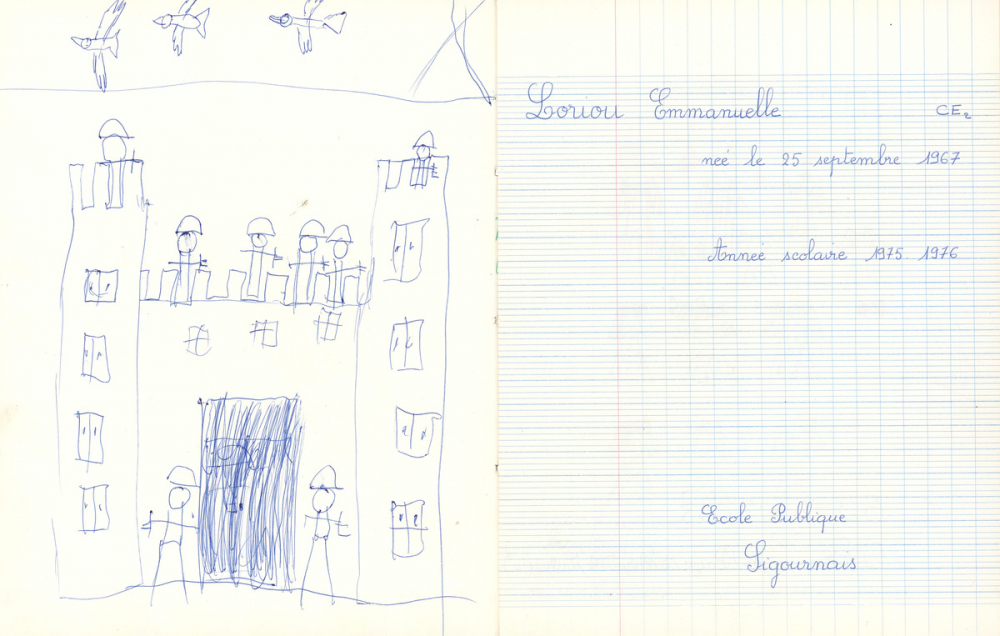 Loriou Emmanuelle CE2
neé le 25 septembre 1967
Année scolaire 1975 1976
Ecole Publique
Sigournais